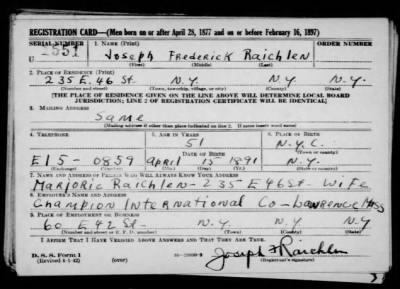 REGISTRATION CARD—(Men born on or after April 28, 1877 and on or before February 16, 1897)
SERIAL NUMBER 1. NAME (Print)
U 1831 Joseph Frederick Raichlen
(First) (Middle) (Last)
2. PLACE OF RESIDENCE (Print)
235 E. 46 St. N.Y. N.Y. N.Y.
(Number and street) (Town, township, village, or city) (County) (State)
[THE PLACE OF RESIDENCE GIVEN ON THE LINE ABOVE WILL DETERMINE LOCAL BOARD
JURISDICTION; LINE 2 OF REGISTRATION CERTIFICATE WILL BE IDENTICAL]
3. MAILING ADDRESS
Same
(Mailing address if other than place indicated on line 2. If same insert word same)
4. TELEPHONE 5. AGE IN YEARS 6. PLACE OF BIRTH
51 N.Y.C.
DATE OF BIRTH
EL5-0859 April 15 1891 N.Y.
7. NAME AND ADDRESS OF PERSON WHO WILL ALWAYS KNOW YOUR ADDRESS
Marjorie Raichlen - 235 E 46 St - Wife
Champion International Co - Lawrence Mass
9. PLACE OF EMPLOYMENT OR BUSINESS
60 E 42 St - N.Y. N.Y. N.Y
(Number and street or R. F. D. number) (Town) (County) (State)
I AFFIRM THAT I HAVE VERIFIED ABOVE ANSWERS AND THAT THEY ARE TRUE.
D. S. S. Form 1
(Revised 4-1-42) (over) Joseph F Raichlen
(Registrant's signature)